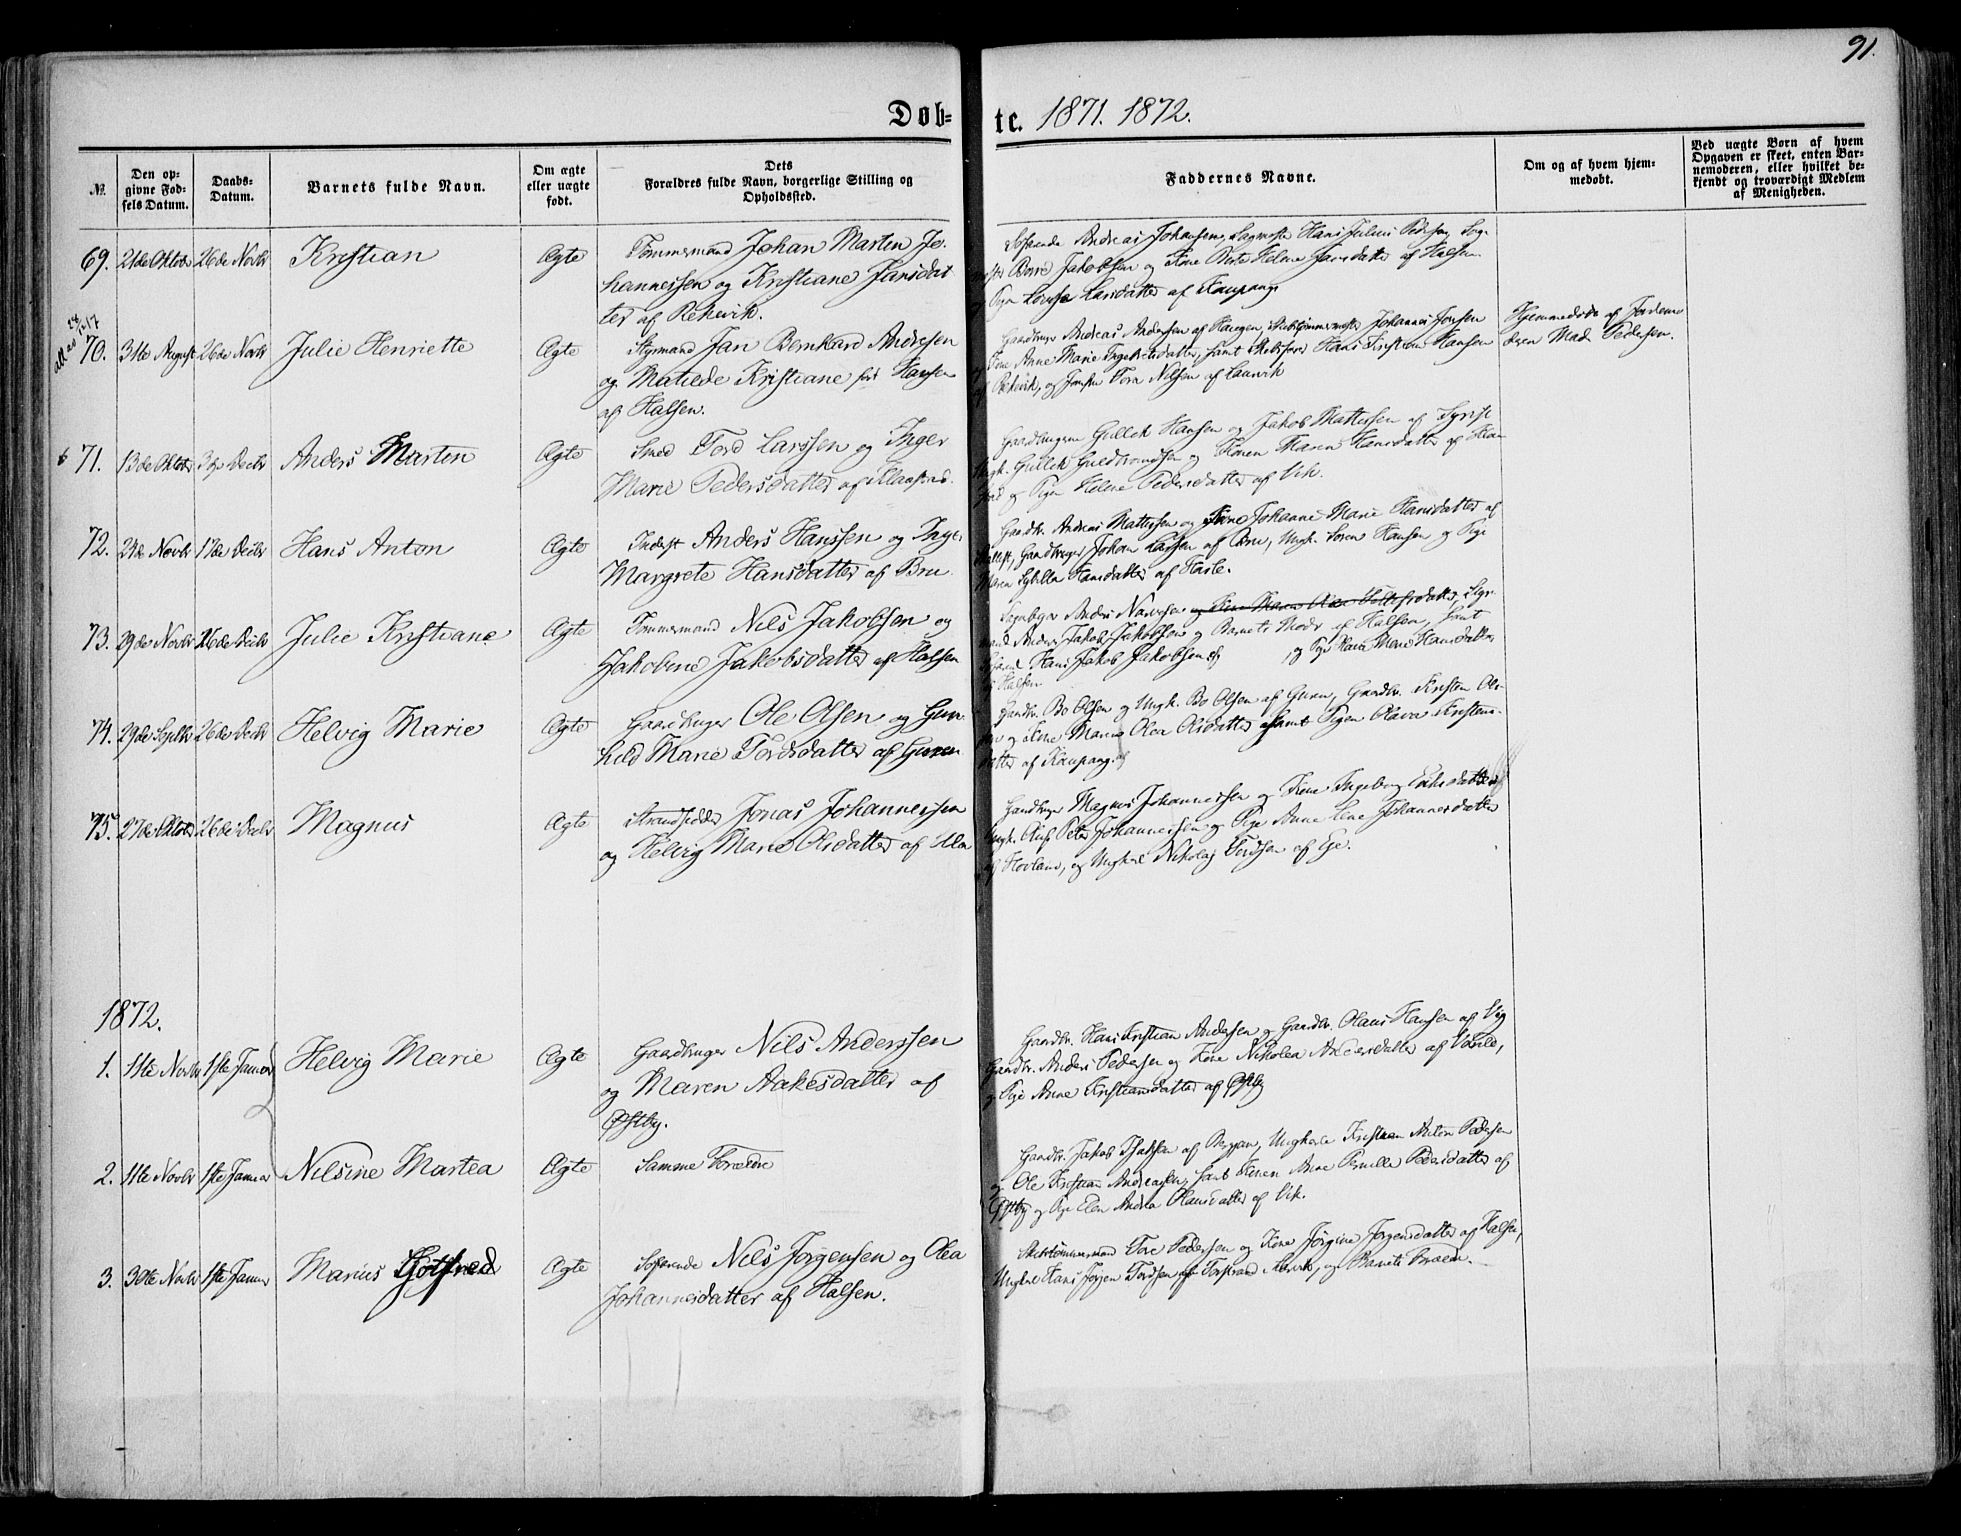 91.
Døb-
te. 1871. 1872.
№.
Den op-
givne Fød-
sels Datum.
Daabs-
Datum.
Barnets fulde Navn.
Om ægte
eller uægte
født.
Dets
Forældres fulde Navn, borgerlige Stilling og
Opholdssted.
Faddernes Navne.
Om og af hvem hjem-
medøbt.
Ved uægte Børn af hvem
Opgaven er skeet, enten Bar-
nemoderen, eller hvilket be-
kjendt og troværdigt Medlem
af Menigheden.
69. 21de Oktob 26de Novbr Kristian Ægte Tømmermand Johan Martin Jo-
hannessen og Kristiane Jansdat
ter af Rekevik.
Søfarende Andreas Johansen, Sagmester Hans Julius Pedersen, Sag-
Borre Jakobsen og Kone Berte Helene Jansdatter af Halsen
Pige Lovise Larsdatter af Kaupang
70. 31te August 26de Novbr Julie Henriette Ægte Styrmand Jan Bernhard Andresen
og Matilde Kristiane født Hansen
af Halsen.
Gaardbruger Andreas Andersen af Haugen, Skibstømmermester Johannes Jonsen
Kone Anne Marie Ingebretsdatter, samt Skibsfører Hans Kristian Hansen
Rekevik, og Jomfru Tora Nilsen af Laurvik
Hjemmedøbt af Jordemo
deren Mad. Pedersen.
71. 13de Oktob 3die Decbr Anders Martin Ægte Smed Tord Larssen og Inger
Marie Pedersdatter af
Gaardbrugerne Gullik Hansen og Jakob Mattissen af Syrist
Ungk. Gullik Guldbrandsen og Konen Maren Hansdatter af
og Pige Helene Pedersdatter af Vik.
72. 21de Novbr 17de Decbr Hans Anton Ægte Inderst Anders Hanssen og Inger
Margrete Hansdatter af Bru
Gaardbr. Andreas Mattissen og Kone Johanne Marie Hansdatter af
Gaardbruger Johan Larsen af Bru, Ungk. Søren Hansen og Pige
Maren Sybille Hansdatter af Hasle.
73. 29de Novbr 26de Decbr Julie Kristiane Ægte Tømmermand Nils Jakobsen og
Jakobine Jakobsdatter af Halsen
Anders Narvesen og Kone Maren Olea Tollefsdatter, Styr-
mand Anders Jakob Jakobsen og Barnets Moder af Halsen, samt
Hans Jakob Jakobsen og Pige Maren Marie Hansdatter
af Halsen
74. 29de Septbr 26de Decbr Helvig Marie Ægte Gaardbruger Ole Olsen og Gun-
hild Marie Tordsdatter af Guren
Gaardbr. Bo Olsen og Ungk. Bo Olsen af Guren, Gaardbr. Kristen Ol-
sen og Kone Maren Olea Olsdatter samt Pigen Olava Kristens-
datter af Kaupang.
75. 27de Oktob 26de Decbr Magnus Ægte Strandsidder Jonas Johannessen
og Helvig Marie Olsdatter af Ula
Gaardbruger Magnus Johannessen og Kone Ingeborg Eriksdatter af
Ungk. Peter Johannessen og Pige Anne Lene Johannesdatter
af Hovland, og Ungkarl Nikolaj Tordsen af Eje.
1872.
1. 11te Novbr 1ste Januar Helvig Marie Ægte Gaardbruger Nils Anderssen
og Maren Aakesdatter af
Østby.
Gaardbr. Hans Kristian Andersen og Gaardbr. Olaus Hansen af Vig
Gaardbr. Anders Pedersen og Kone Nikolea Andersdatter af
og Pige Anne Kristiansdatter af Østby
2. 11te Novbr 1ste Januar Nilsine Martea Ægte Samme Forældre
Gaardbr. Jakob Isaksen af Bergan, Ungkarle Kristian Anton Pedersen
og Ole Kristian Andreasen, samt Konen Anne Pernille Pedersdatter af
Østby og Pige Elen Andrea Olausdatter af Vik.
3. 30te Novbr 1ste Januar Marius Gotfred Ægte Søfarende Nils Jørgensen og Olea
Johannesdatter af Halsen.
Skibstømmermand Tore Pedersen og Kone Jørgine Jørgensdatter af Halsen,
Ungkarl Hans Jørgen Tordsen af Torstrand Larvik, og Barnets Fader.